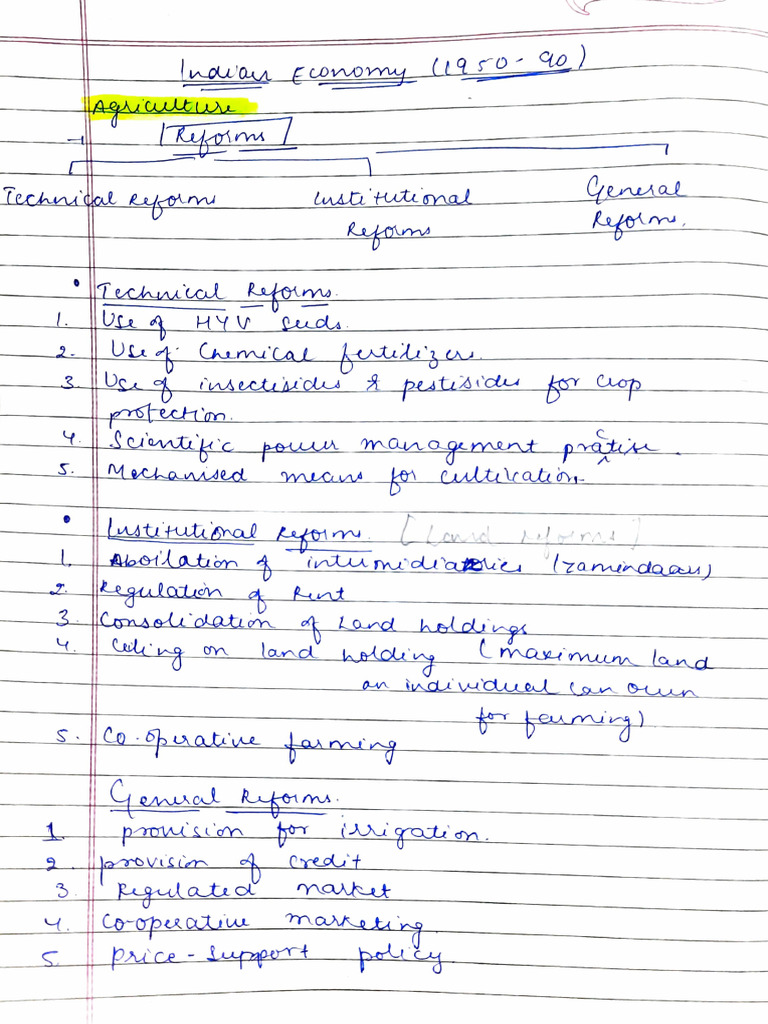 Indian Economy (1950-90)
Agriculture
Reforms
Technical Reforms Institutional Reforms General Reforms.
• Technical Reforms.
1. Use of HYV seeds.
2. Use of Chemical fertilizers.
3. Use of insectisides & pestisides for crop
protection.
4. Scientific power management practise.
5. Mechanised means for cultivation.
• Institutional Reforms. [Land reforms]
1. Aboilation of intermidiatories (zamindaars)
2. Regulation of Rent
3. Consolidation of Land holdings
4. Ceiling on land holding (maximum land
an individual can own
for farming)
5. Co-operative farming
General Reforms.
1. provision for irrigation.
2. provision of credit
3. Regulated market
4. Co-operative marketing
5. price-support policy